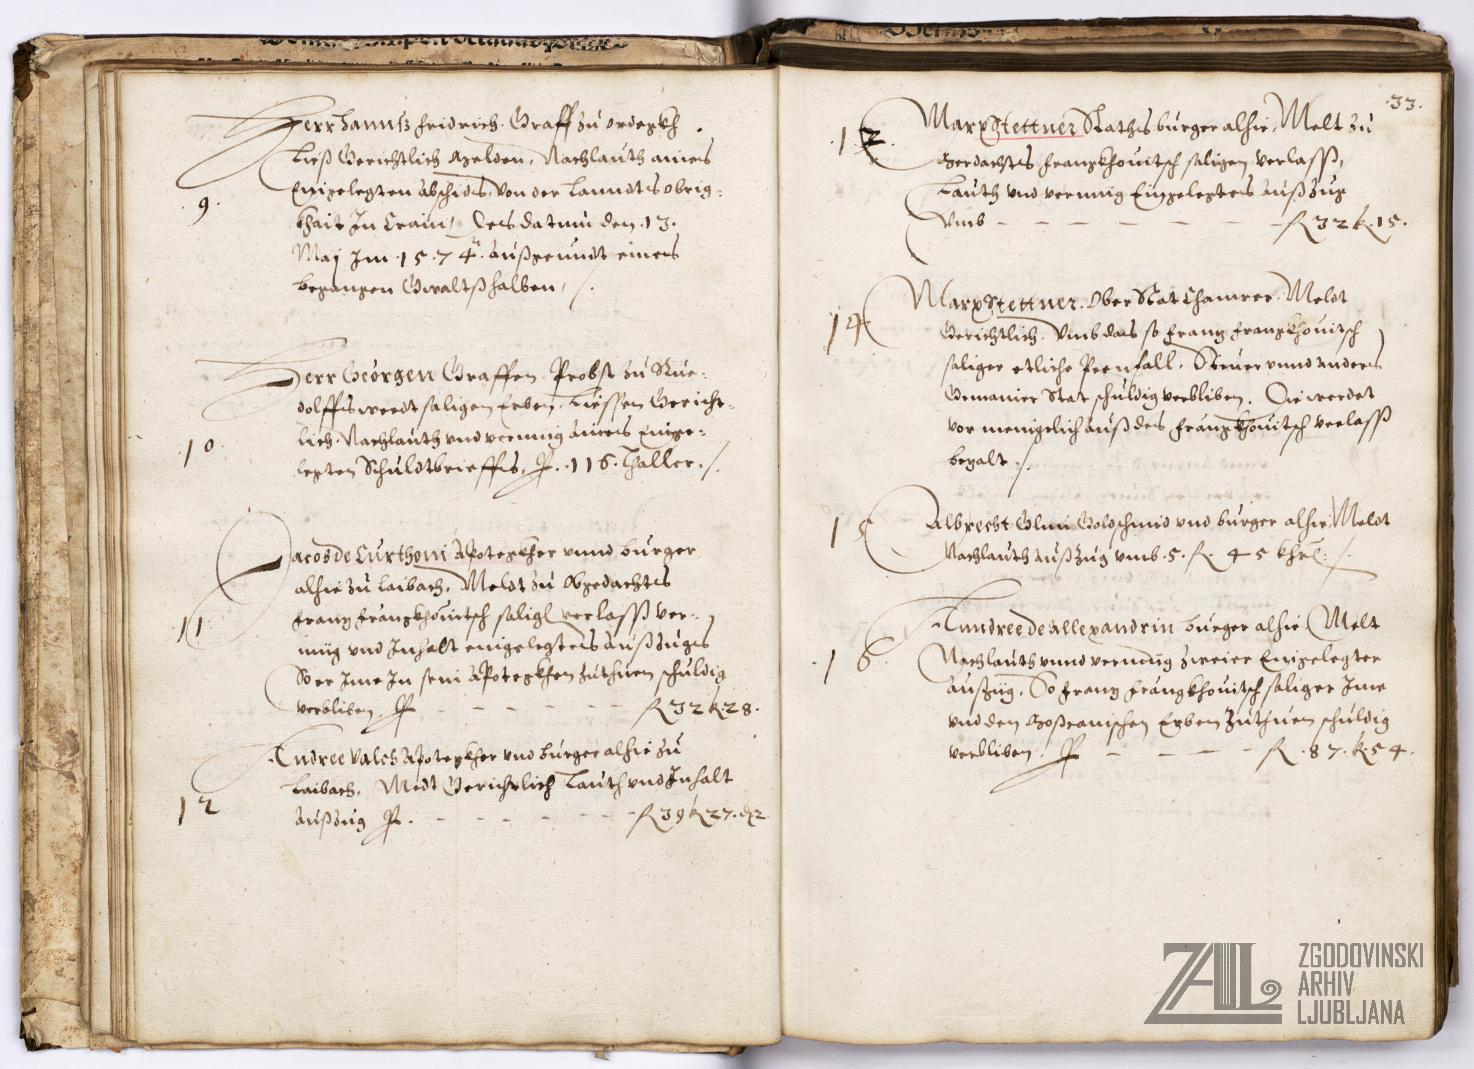 Herr Hannß Fridrich Graff zu Ordegkh
Liess Gerichtlich Melden, Nachlauth aines
Eingelegten Abschids, von der Lanndts obrig-
9.
khait In Crain, des datum den 13.
Maj Im 1574. Außgeundt eines
begangen Gwaltß halben,
Herr Geörgen Graffen Probst zu Rue-
dolffswerdt saligen Erben, Liessen Gericht-
10
lich Nachlauth vnd vermug aines Einge-
legten Schuldtbrieffs, P. 116. Thaller.
Jacob de Curthoni Apotegkher vnnd burger
alhie zu Laibach, Meldt zu Obgedachts
11
Frantz Frangkhouitsch salign verlassß ver-
müg vnd Innhalt eingelegtens Außzugs
So er Ime In sein Apotegkhen zuthuen schuldig
verbliben. P. - - - - - - - R 32 k 28.
Andree Vales Apotegkher vnd burger alhie zu
Laibach, Meldt Gerichtlich Lauth vnd Innhalt
12
Außzug P. - - - - - - - R 39 k 27. d 2
33.
Marx Stettner Rathsburger alhie, Melt zu
12.
gerdachts Frangkhouitsch saligen verlassß,
Lauth vnd vermug Eingelegtens Außzug
Vmb - - - - - - - R 32 k. 15.
Marx Stettner, Ober Stat Chamrer, Meldt
14
Gerichtlich, Vmb das so Frantz Frangkhouitsch
saliger etliche Peenfall, Steuer vnnd anders
Gemainer Stat schuldig verbliben, Die werdet
vor menigelich auß des Frangkhouitsch verlassß
bezalt.
15
Albrecht Glini Goldschmid vnd burger alhie, Meldt
Nachlauth Außzug vmb. 5. R. 45 khr:
Anndree de Allexandrin burger alhie, Melt
16.
Nachlauth vnnd vermug zwaier Eingelegter
Außzüg, So Frantz Frangkhouitsch saliger Ime
vnd den Erben zuthuen schuldig
verbliben. P. - - - - - R. 87. k. 54.
ZAL
ZGODOVINSKI
ARHIV
LJUBLJANA